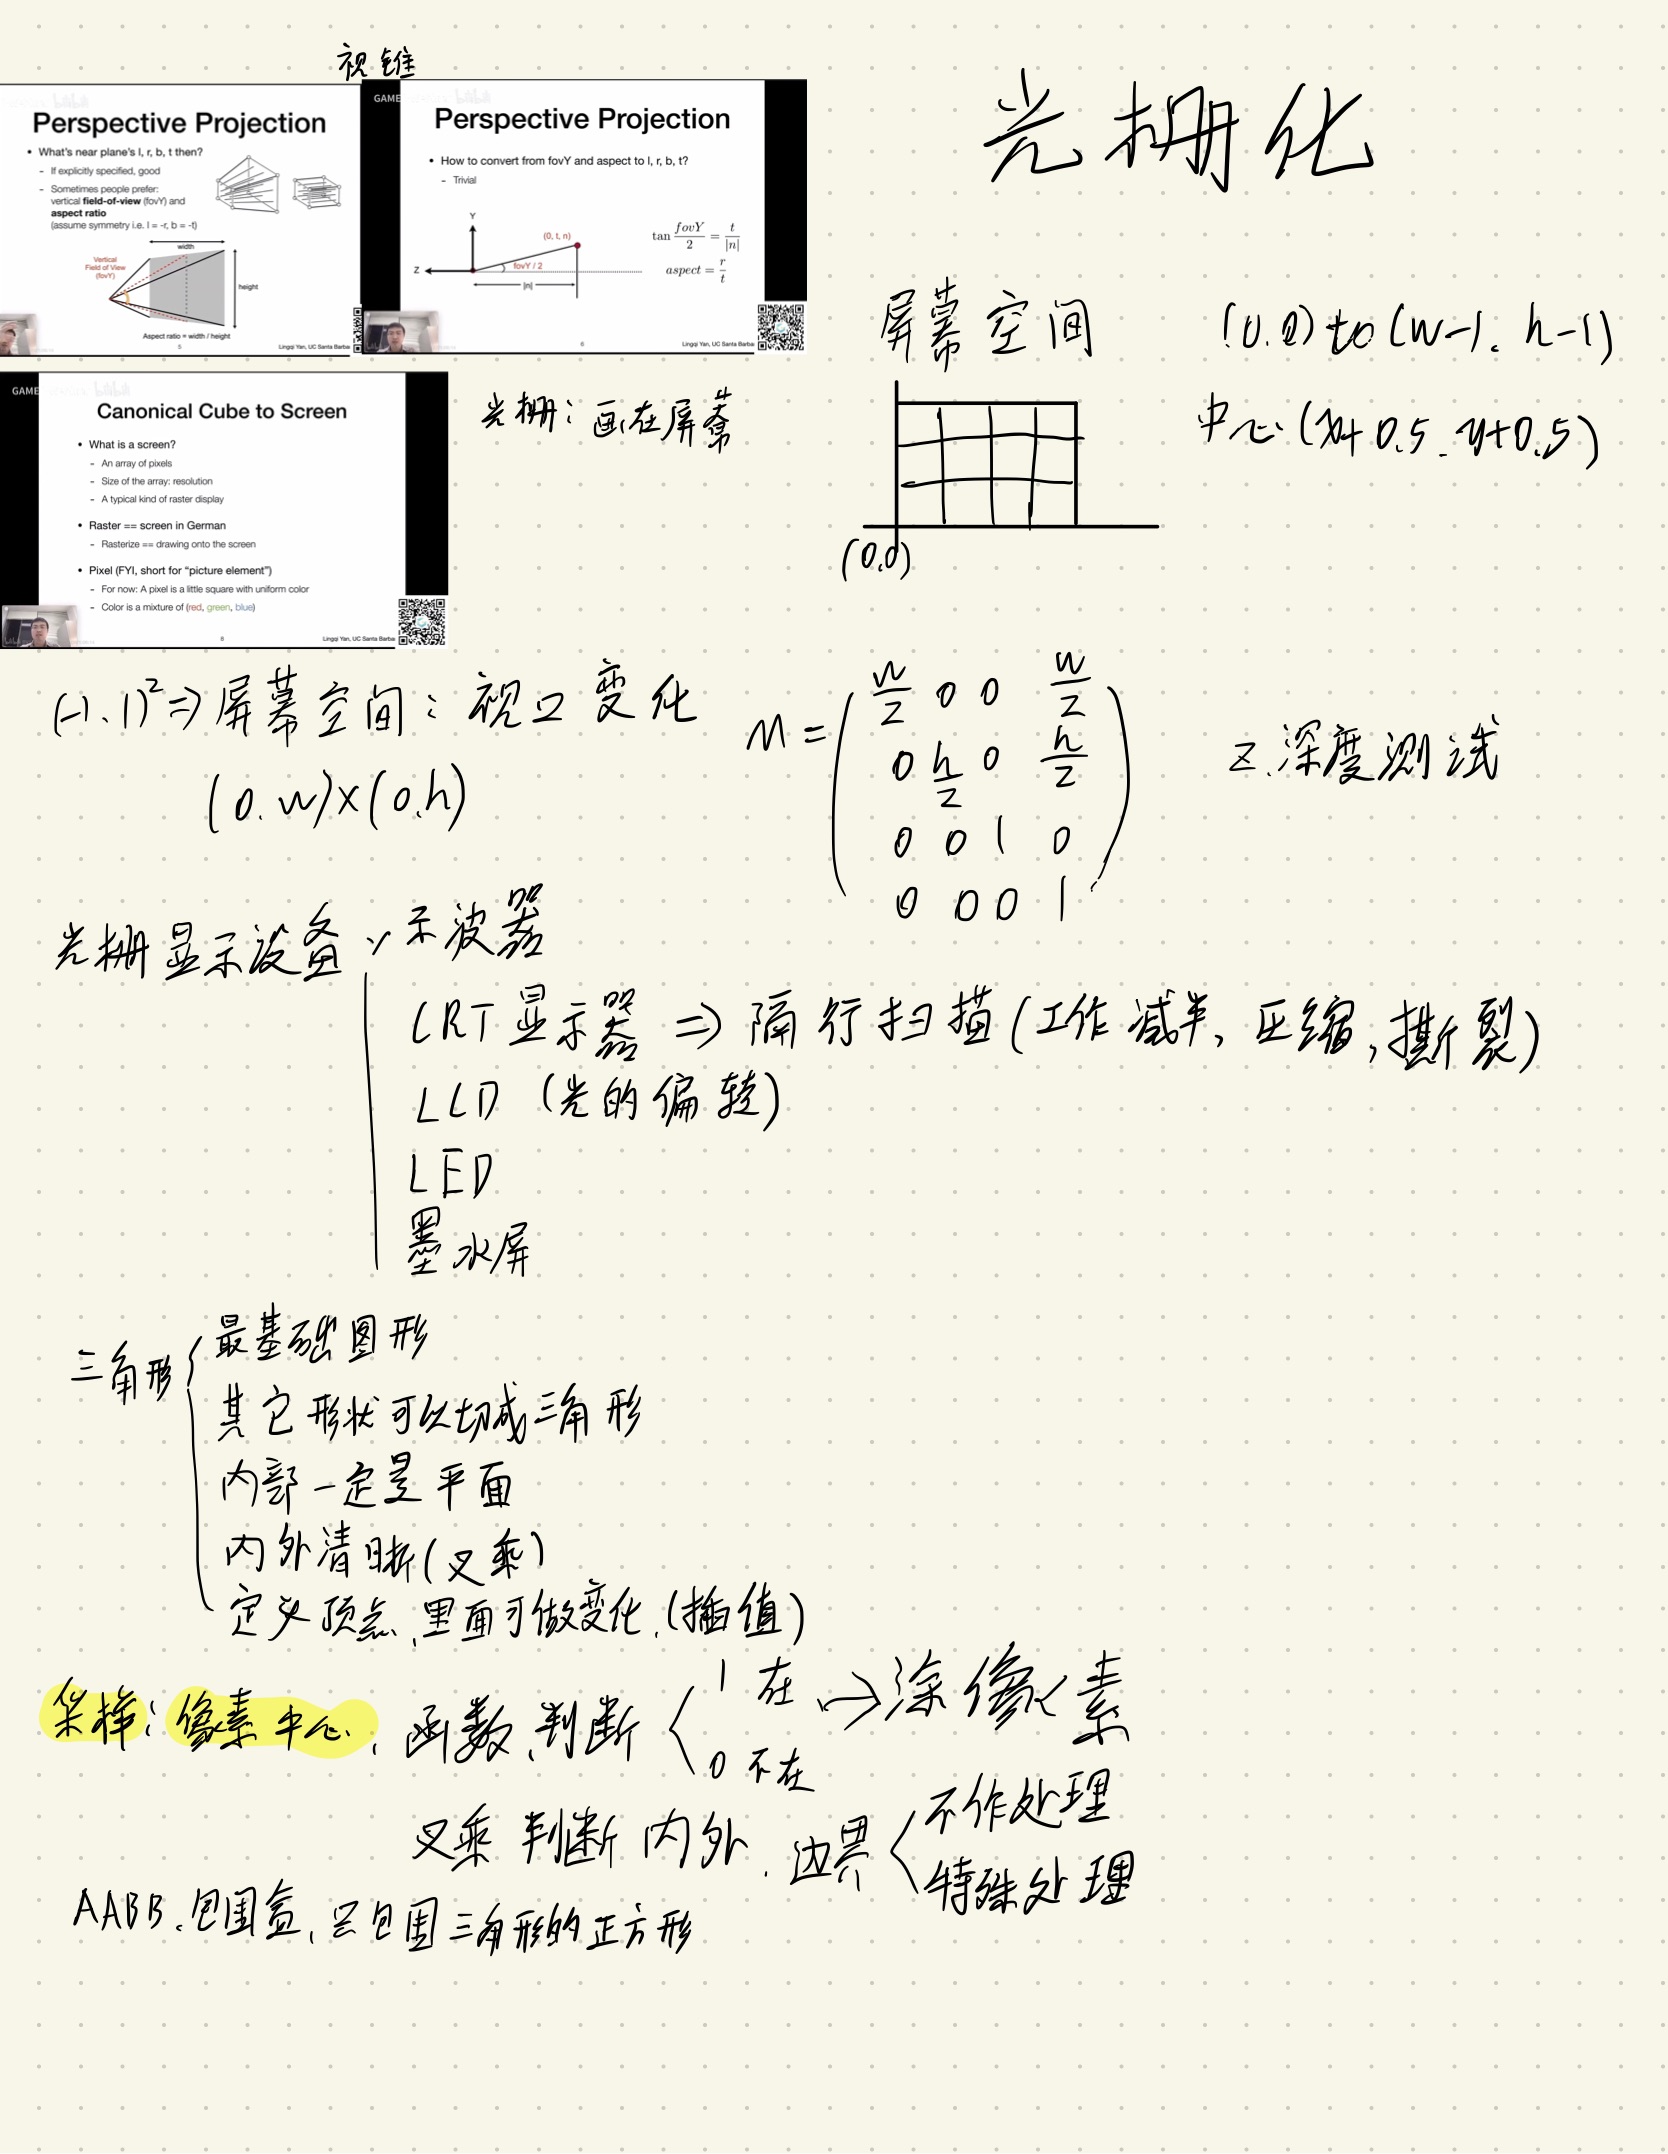 视锥
Perspective Projection
• What's near plane's l, r, b, t then?
- If explicitly specified, good
- Sometimes people prefer:
vertical field-of-view (fovY) and
aspect ratio
(assume symmetry i.e. l = -r, b = -t)
width
Vertical
Field of View
(fovY)
height
Aspect ratio = width / height
5
Lingqi Yan, UC Santa Barba
GAME
bilibili
Perspective Projection
• How to convert from fovY and aspect to l, r, b, t?
- Trivial
Y
(0, t, n)
Z
fovY / 2
|n|
tan fovY/2 = t/|n|
aspect = r/t
6
Lingqi Yan, UC Santa Barba
光栅化
屏幕空间 (0.0) to (w-1. h-1)
中心: (x+0.5. y+0.5)
(0,0)
GAME
bilibili
Canonical Cube to Screen
• What is a screen?
- An array of pixels
- Size of the array: resolution
- A typical kind of raster display
• Raster == screen in German
- Rasterize == drawing onto the screen
• Pixel (FYI, short for “picture element”)
- For now: A pixel is a little square with uniform color
- Color is a mixture of (red, green, blue)
8
Lingqi Yan, UC Santa Barba
光栅: 画在屏幕
(-1. 1)² ⇒ 屏幕空间: 视口变化
(0. w)×(0.h)
M = ( w/2 0 0 w/2
0 h/2 0 h/2
0 0 1 0
0 0 0 1 )
z. 深度测试
光栅显示设备: 示波器
CRT显示器 ⇒ 隔行扫描(工作减半, 压缩, 撕裂)
LCD (光的偏转)
LED
墨水屏
三角形 { 最基础图形
其它形状可以切成三角形
内部一定是平面
内外清晰(叉乘)
定义顶点, 里面可做变化.(插值)
采样: 像素中心, 函数, 判断 < 1 在 → 涂像素
0 不在
叉乘判断内外. 边界 < 不作处理
特殊处理
AABB. 包围盒, 只包围三角形的正方形